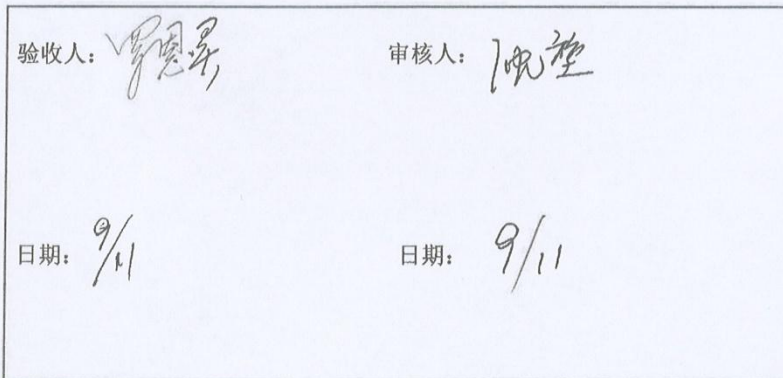 验收人： 审核人：
日期：9/11 日期：9/11